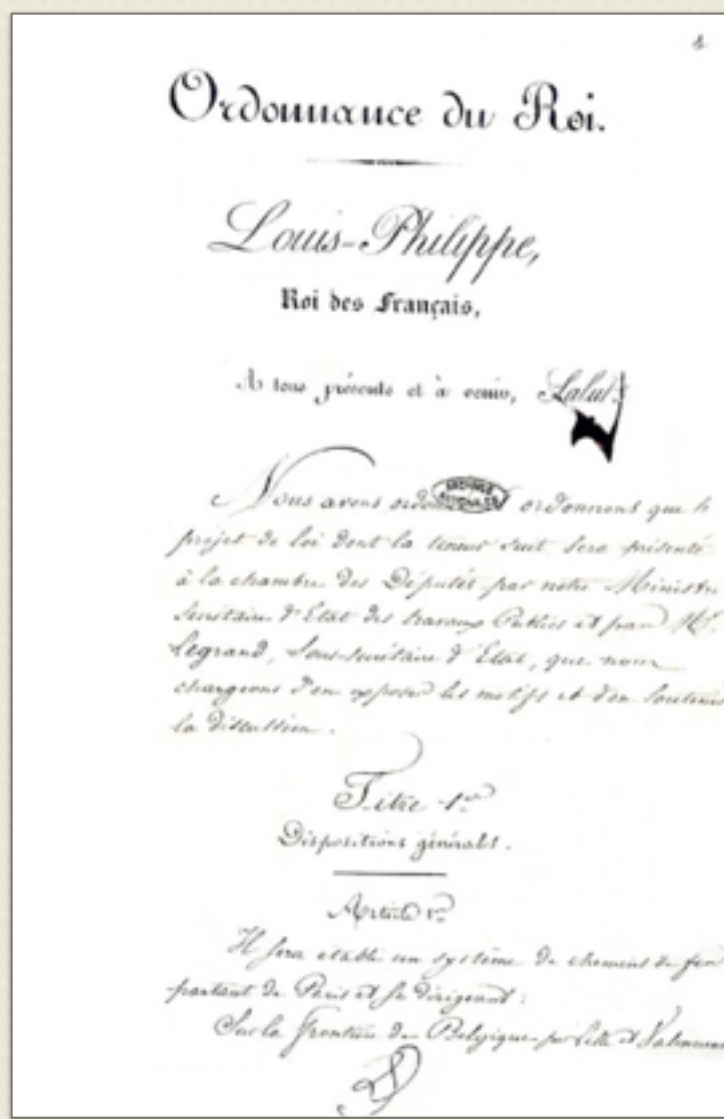 Ordonnance du Roi.
Louis-Philippe,
Roi des Français,
A tous présents et à venir, Salut.
Nous avons ordonné ordonnons que le
projet de loi dont la teneur suit sera présenté
à la chambre des Députés par notre Ministre
Secrétaire d'Etat des travaux Publics et par Mr.
Legrand, Sous-secrétaire d'Etat, que nous
chargeons d'en exposer les motifs et d'en soutenir
la discussion.
Titre 1er
Dispositions générales.
Article 1er
Il sera établi un système de chemins de fer
partant de Paris et se dirigeant :
Sur la frontière de Belgique par Lille et Valenciennes